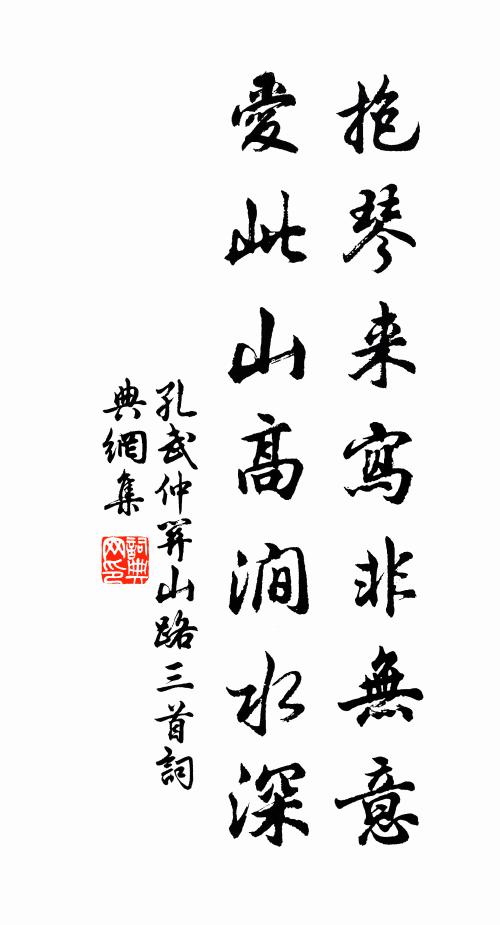 抱琴来寫非無意
愛此山高澗水深
孔武仲羿山路三首詞
典網集
詞典
网印